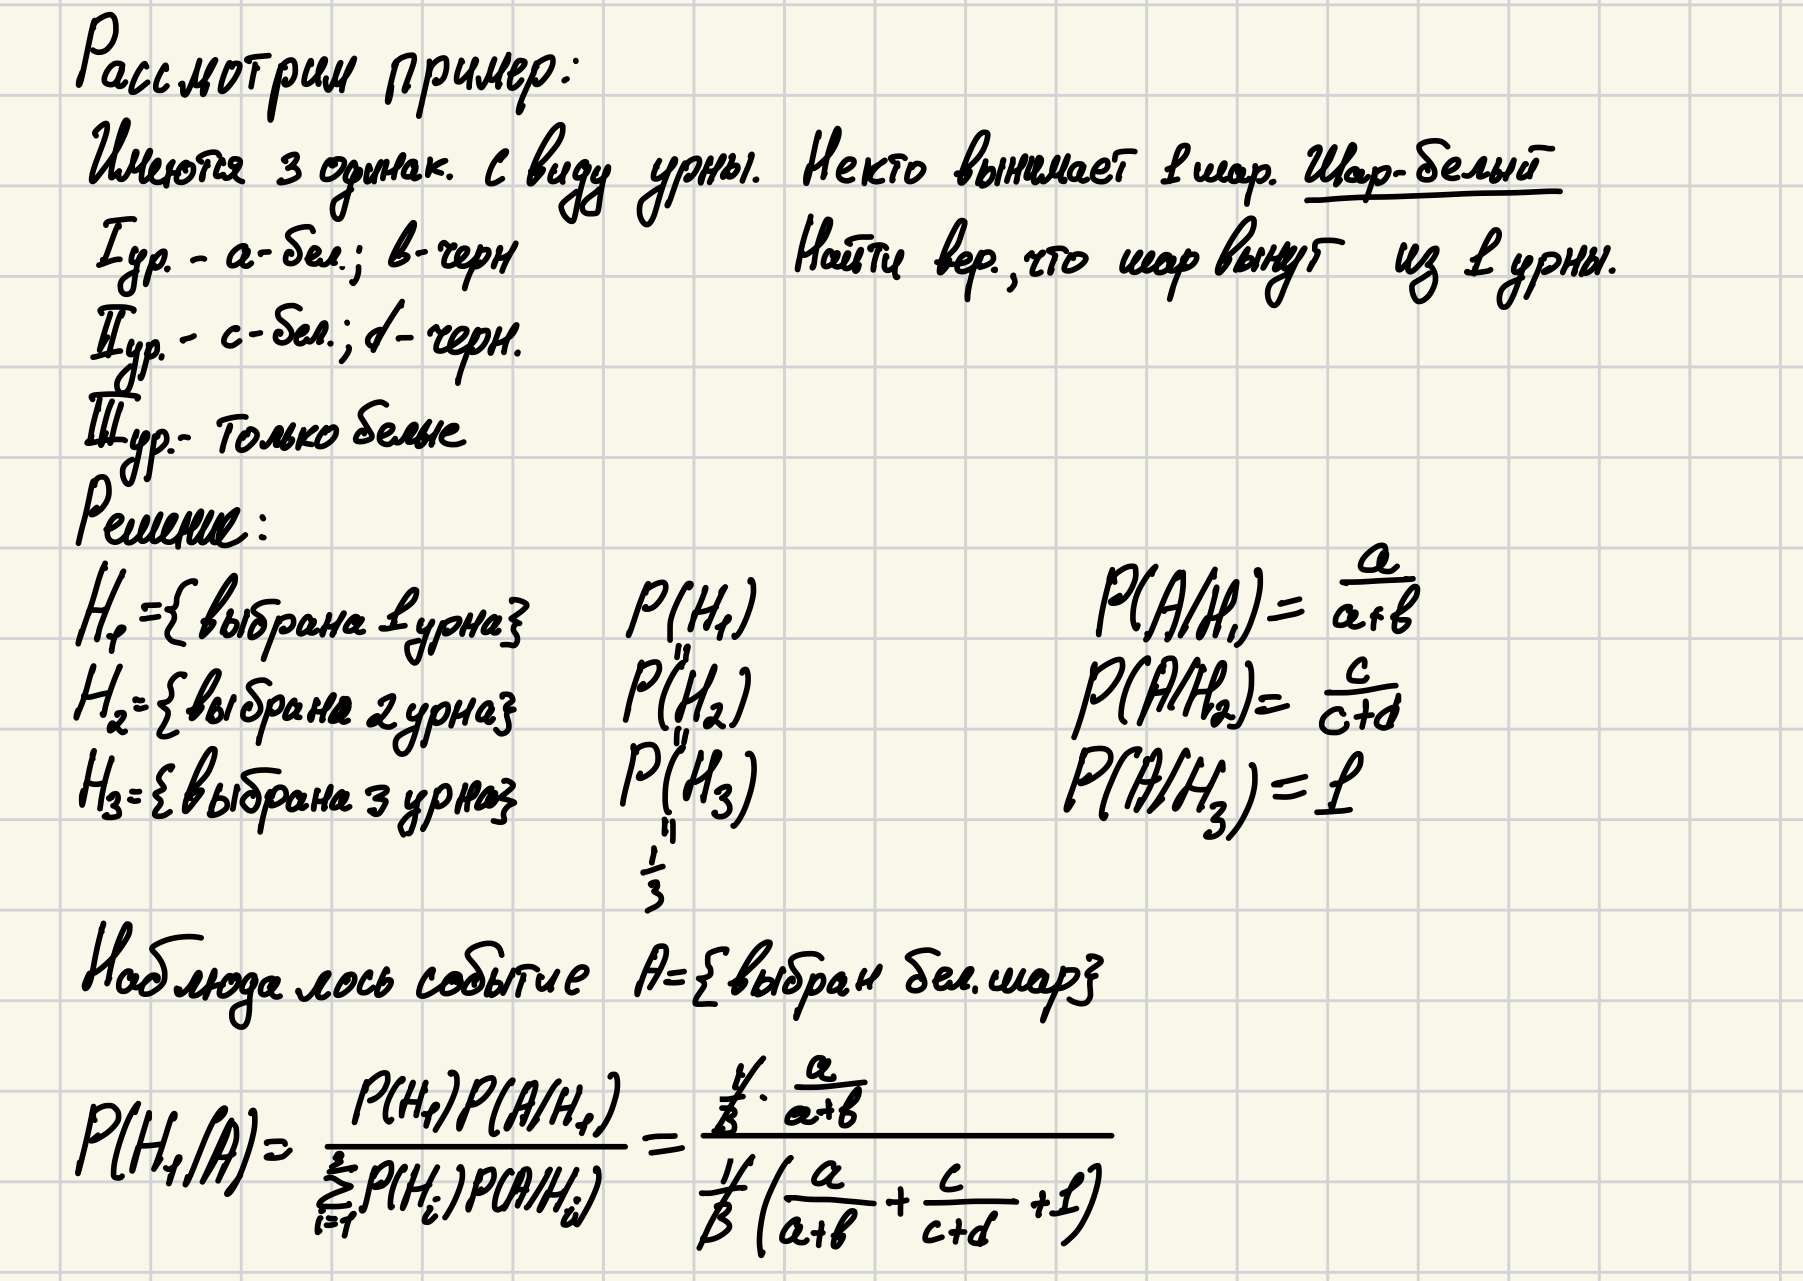 Рассмотрим пример:
Имеются 3 одинак. с виду урны. Некто вынимает 1 шар. Шар-белый
I ур. - a-бел.; b-черн Найти вер., что шар вынут из 1 урны.
II ур. - c-бел.; d-черн.
III ур.- только белые
Решение:
H₁={выбрана 1 урна} P(H₁) P(A/H₁)= a/(a+b)
"
H₂={выбрана 2 урна} P(H₂) P(A/H₂)= c/(c+d)
"
H₃={выбрана 3 урна} P(H₃) P(A/H₃)=1
"
1/3
Наблюдалось событие A={выбран бел. шар}
P(H₁/A)= P(H₁)P(A/H₁) / ∑_{i=1}^{3} P(H_i)P(A/H_i) = 1/3 · a/(a+b) / 1/3 (a/(a+b) + c/(c+d) +1)